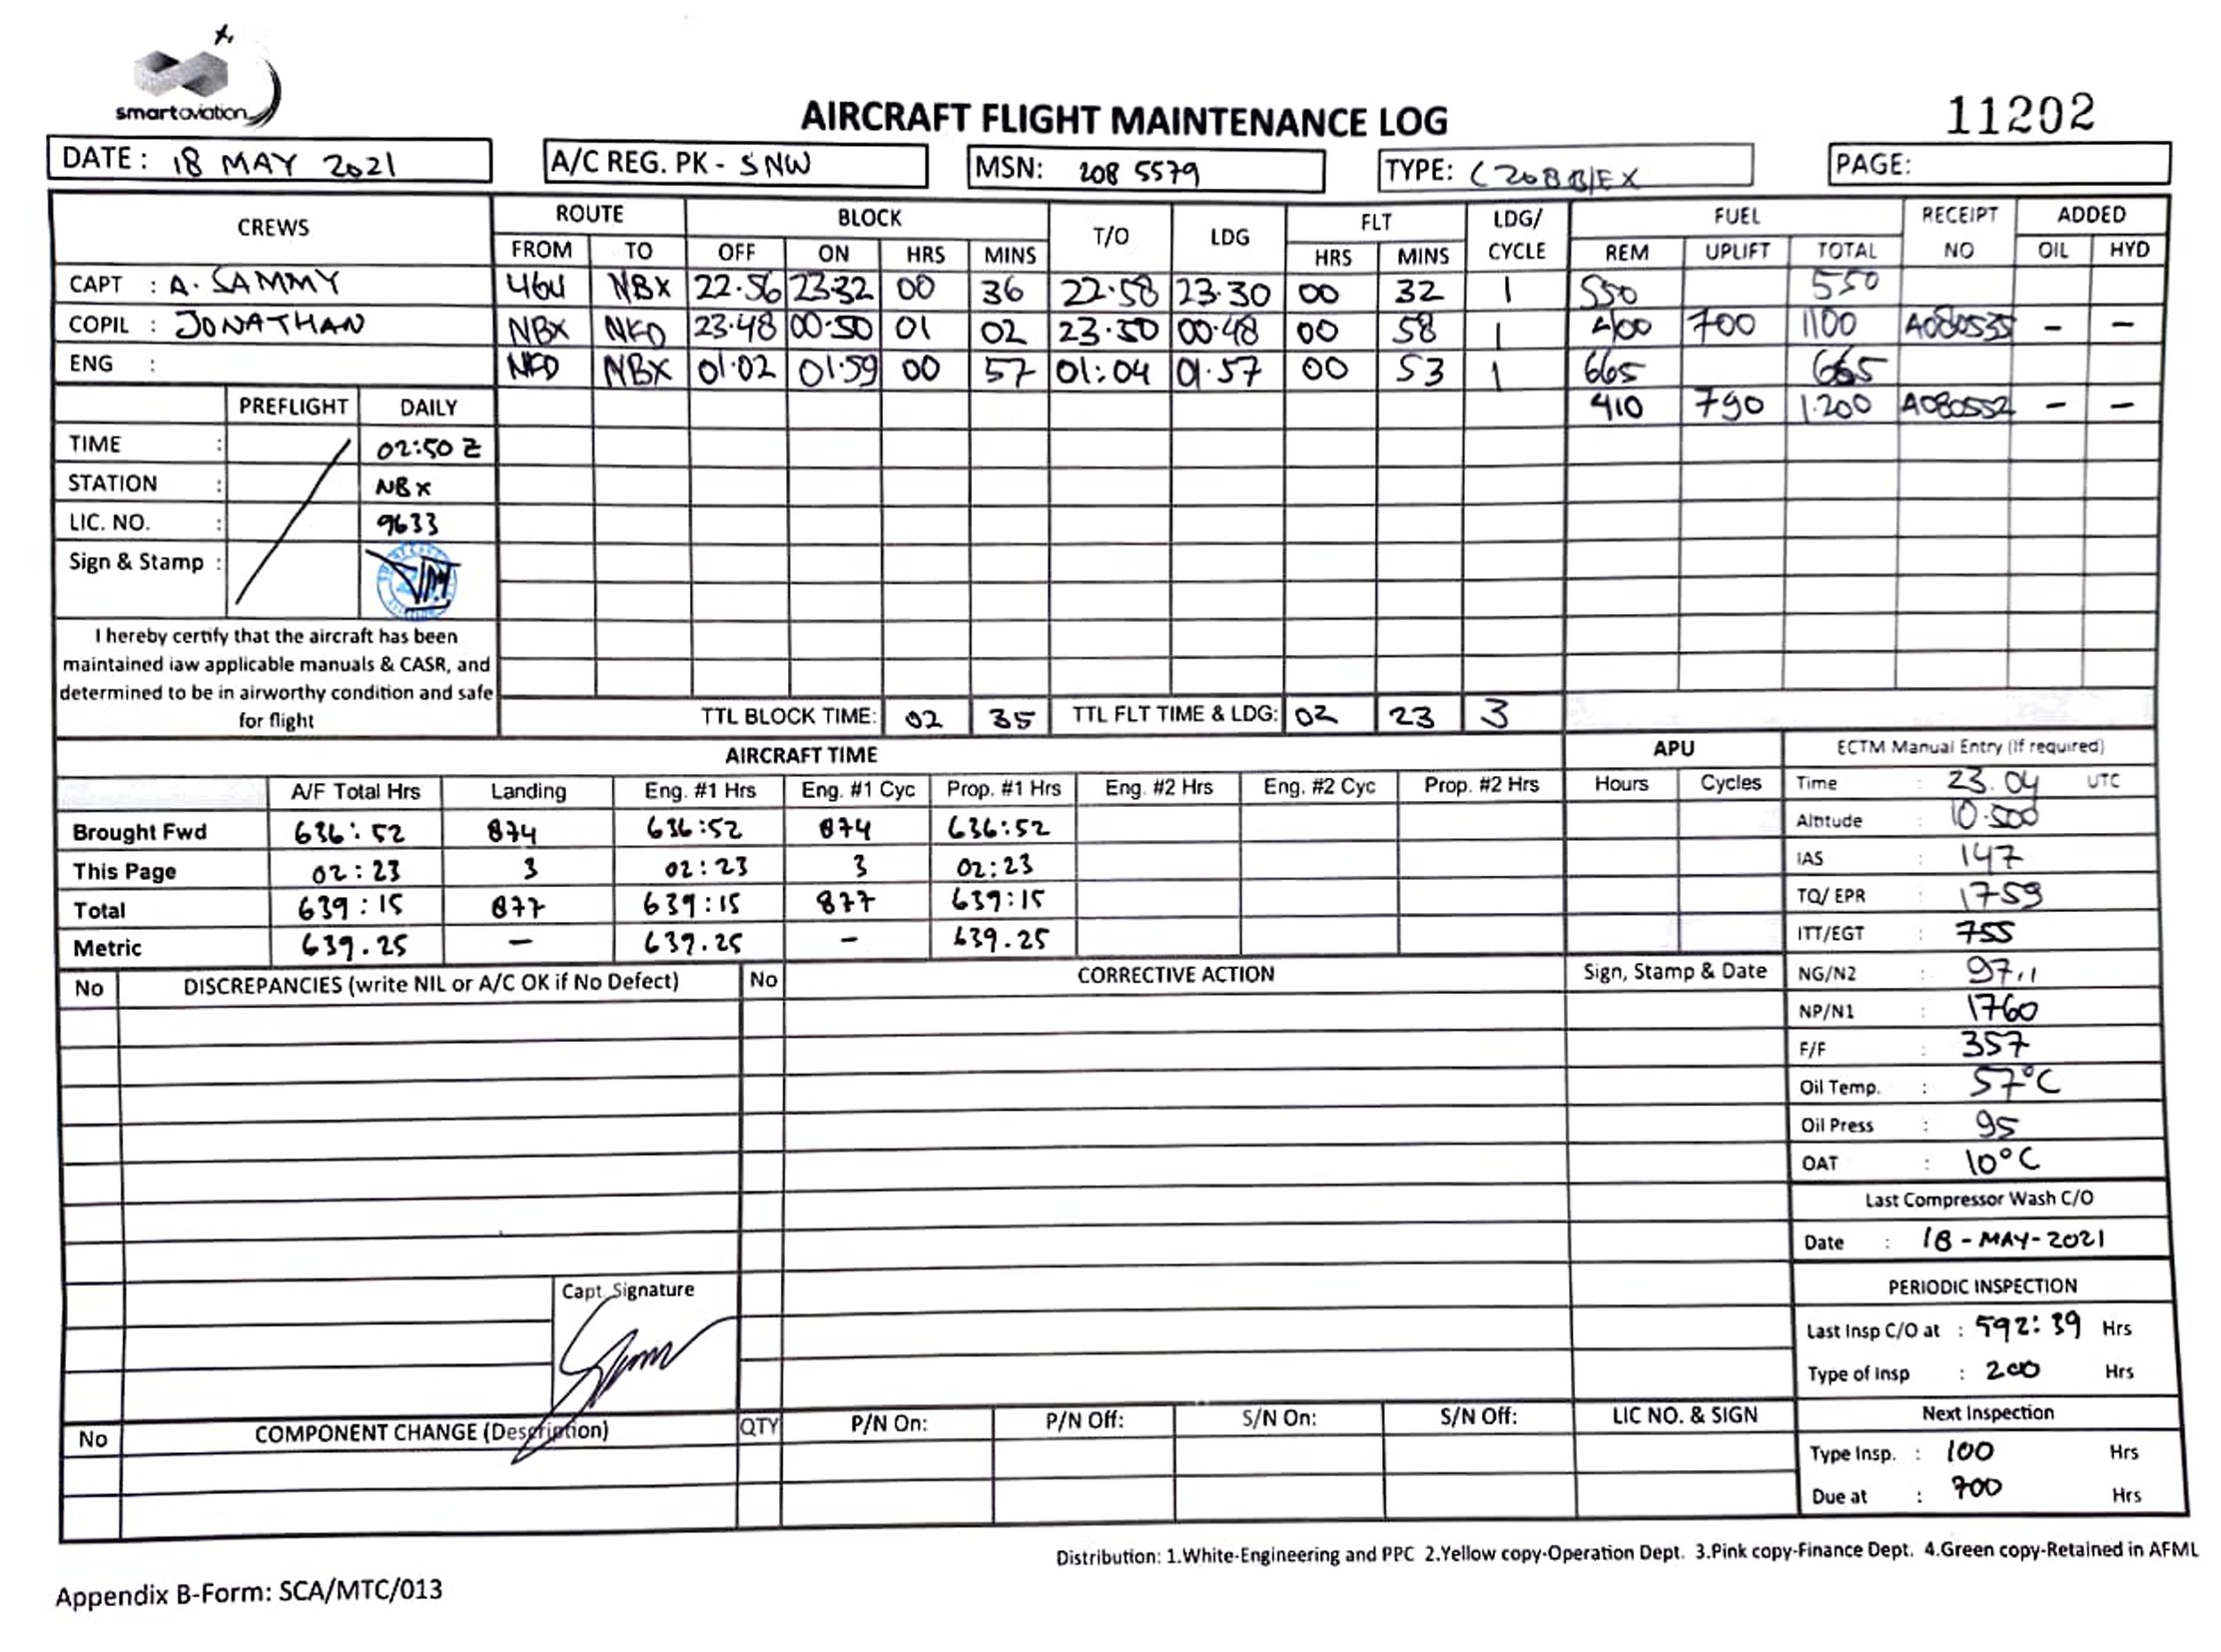 smartaviation
AIRCRAFT FLIGHT MAINTENANCE LOG
11202
DATE: 18 MAY 2021 A/C REG. PK - SNW MSN: 208 5579 TYPE: C208B/EX PAGE:
CREWS ROUTE BLOCK T/O LDG FLT LDG/ CYCLE FUEL RECEIPT NO ADDED
FROM TO OFF ON HRS MINS HRS MINS REM UPLIFT TOTAL OIL HYD
CAPT : A. SAMMY 46U NBX 22.56 23.32 00 36 22.58 23.30 00 32 1 550 550
COPIL : JONATHAN NBX NKD 23.48 00.50 01 02 23.50 00.48 00 58 1 400 700 1100 A080535 - -
ENG : NKD NBX 01.02 01.59 00 57 01:04 01.57 00 53 1 665 665
PREFLIGHT DAILY 410 790 1.200 A080552 - -
TIME : 02:50 Z
STATION : NBX
LIC. NO. : 9633
Sign & Stamp :
I hereby certify that the aircraft has been
maintained iaw applicable manuals & CASR, and
determined to be in airworthy condition and safe
for flight
TTL BLOCK TIME: 02 35 TTL FLT TIME & LDG: 02 23 3
AIRCRAFT TIME APU ECTM Manual Entry (If required)
A/F Total Hrs Landing Eng. #1 Hrs Eng. #1 Cyc Prop. #1 Hrs Eng. #2 Hrs Eng. #2 Cyc Prop. #2 Hrs Hours Cycles Time : 23.04 UTC
Brought Fwd 636:52 874 636:52 874 636:52 Altitude : 10.500
This Page 02:23 3 02:23 3 02:23 IAS : 147
Total 639:15 877 639:15 877 639:15 TQ/ EPR : 1759
Metric 639.25 - 639.25 - 639.25 ITT/EGT : 755
No DISCREPANCIES (write NIL or A/C OK if No Defect) No CORRECTIVE ACTION Sign, Stamp & Date NG/N2 : 97.1
NP/N1 : 1760
F/F : 357
Oil Temp. : 57°C
Oil Press : 95
OAT : 10°C
Last Compressor Wash C/O
Date : 18-MAY-2021
PERIODIC INSPECTION
Capt. Signature
Last Insp C/O at : 592:39 Hrs
Type of Insp : 200 Hrs
No COMPONENT CHANGE (Description) QTY P/N On: P/N Off: S/N On: S/N Off: LIC NO. & SIGN Next Inspection
Type Insp. : 100 Hrs
Due at : 700 Hrs
Distribution: 1.White-Engineering and PPC 2.Yellow copy-Operation Dept. 3.Pink copy-Finance Dept. 4.Green copy-Retained in AFML
Appendix B-Form: SCA/MTC/013